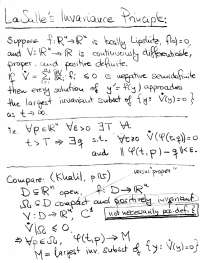 LaSalle's Invariance Principle:
Suppose f: ℝⁿ→ℝⁿ is locally Lipschitz, f(0)=0,
and V: ℝⁿ→ℝ is continuously differentiable,
proper and positive definite.
If V̇ = f is negative semidefinite
then every solution of y' = f(y) approaches
the largest invariant subset of {y: V̇(y)=0}
as t→∞.
i.e. ∀p∈ℝⁿ ∀ε>0 ∃T ∀t
t>T ⇒ ∃q s.t. V̇(φ(t,q))=0
and ‖φ(t,p)-q‖<ε.
versus "proper"
Compare (Khalil, p 115)
D⊆ℝⁿ open, f: D→ℝⁿ
Ω⊆D compact and positively invariant
V: D→ℝ, C¹ not necessarily pos. def.
V̇|Ω ≤ 0,
⇒ ∀p∈Ω, φ(t,p)→M
M = largest inv. subset of {y: V̇(y)=0}